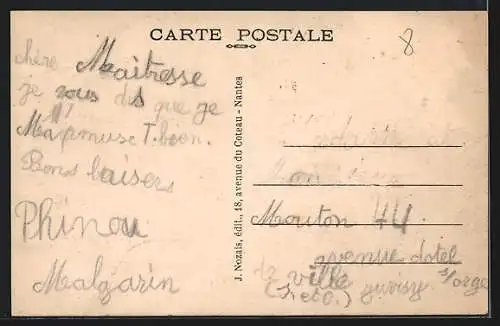 CARTE POSTALE
8
chère Maîtresse
je vous dis que je
M'amuse T. bien.
Bons baisers
Phinou
Malgarin
J. Nozais, édit., 18, avenue du Coteau - Nantes
Mouton 44.
avenue dotel
de ville juvisy s/orge
(S. et O.)